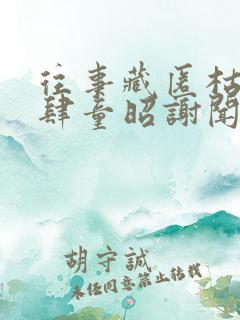 往事藏匿枯
肆童昭謝聞
胡守誠
未经同意禁止转载